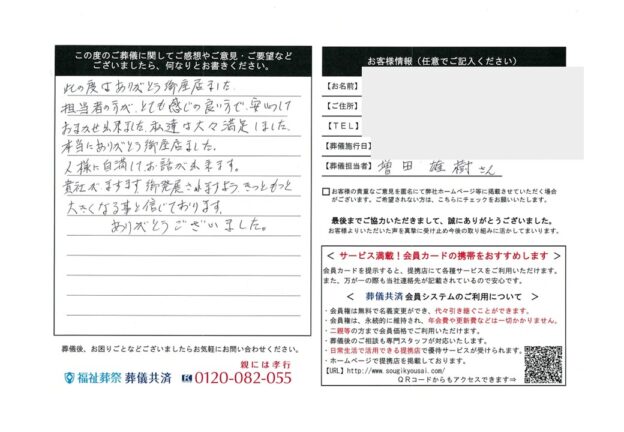 この度のご葬儀に関してご感想やご意見・ご要望など
ございましたら、何なりとお書きください。
此の度はありがとう御座居ました。
担当者の方が、とても感じの良い方で、安心して
おまかせ出来ました。私達は大々満足しました。
本当にありがとう御座居ました。
人様に自満してお話が出来ます。
貴社がますます御発展されますよう、きっともっと
大きくなる事と信じております。
ありがとうございました。
葬儀後、お困りごとなどございましたらお気軽にお問い合わせください。
親には孝行
福祉葬祭 葬儀共済 0120-082-055
お客様情報（任意でご記入ください）
【お名前】
【ご住所】
【TEL】
【葬儀施行日】
【葬儀担当者】 増田 雄樹さん
□ お客様の貴重なご意見を匿名にて弊社ホームページ等に掲載させていただく場合
がございます。ご希望されない方は、こちらにチェックをお願いいたします。
最後までご協力いただきまして、誠にありがとうございました。
お客様よりいただいた声を真摯に受け止め今後の取り組みに活かしてまいります。
＜ サービス満載！会員カードの携帯をおすすめします ＞
会員カードを提示すると、提携店にて各種サービスをご利用いただけます。
また、万が一の際も当社連絡先が記載されているので安心です。
＜ 葬儀共済 会員システムのご利用について ＞
・会員権は無料で名義変更ができ、代々引き継ぐことができます。
・会員権は、永続的に維持され、年会費や更新費などは一切かかりません。
・二親等の方まで会員価格でご利用いただけます。
・葬儀後のご相談も専門スタッフが対応いたします。
・日常生活で活用できる提携店で優待サービスが受けられます。
・ホームページで提携店を掲載しております。
【URL】http://www.sougikyousai.com/
QRコードからもアクセスできます⇒